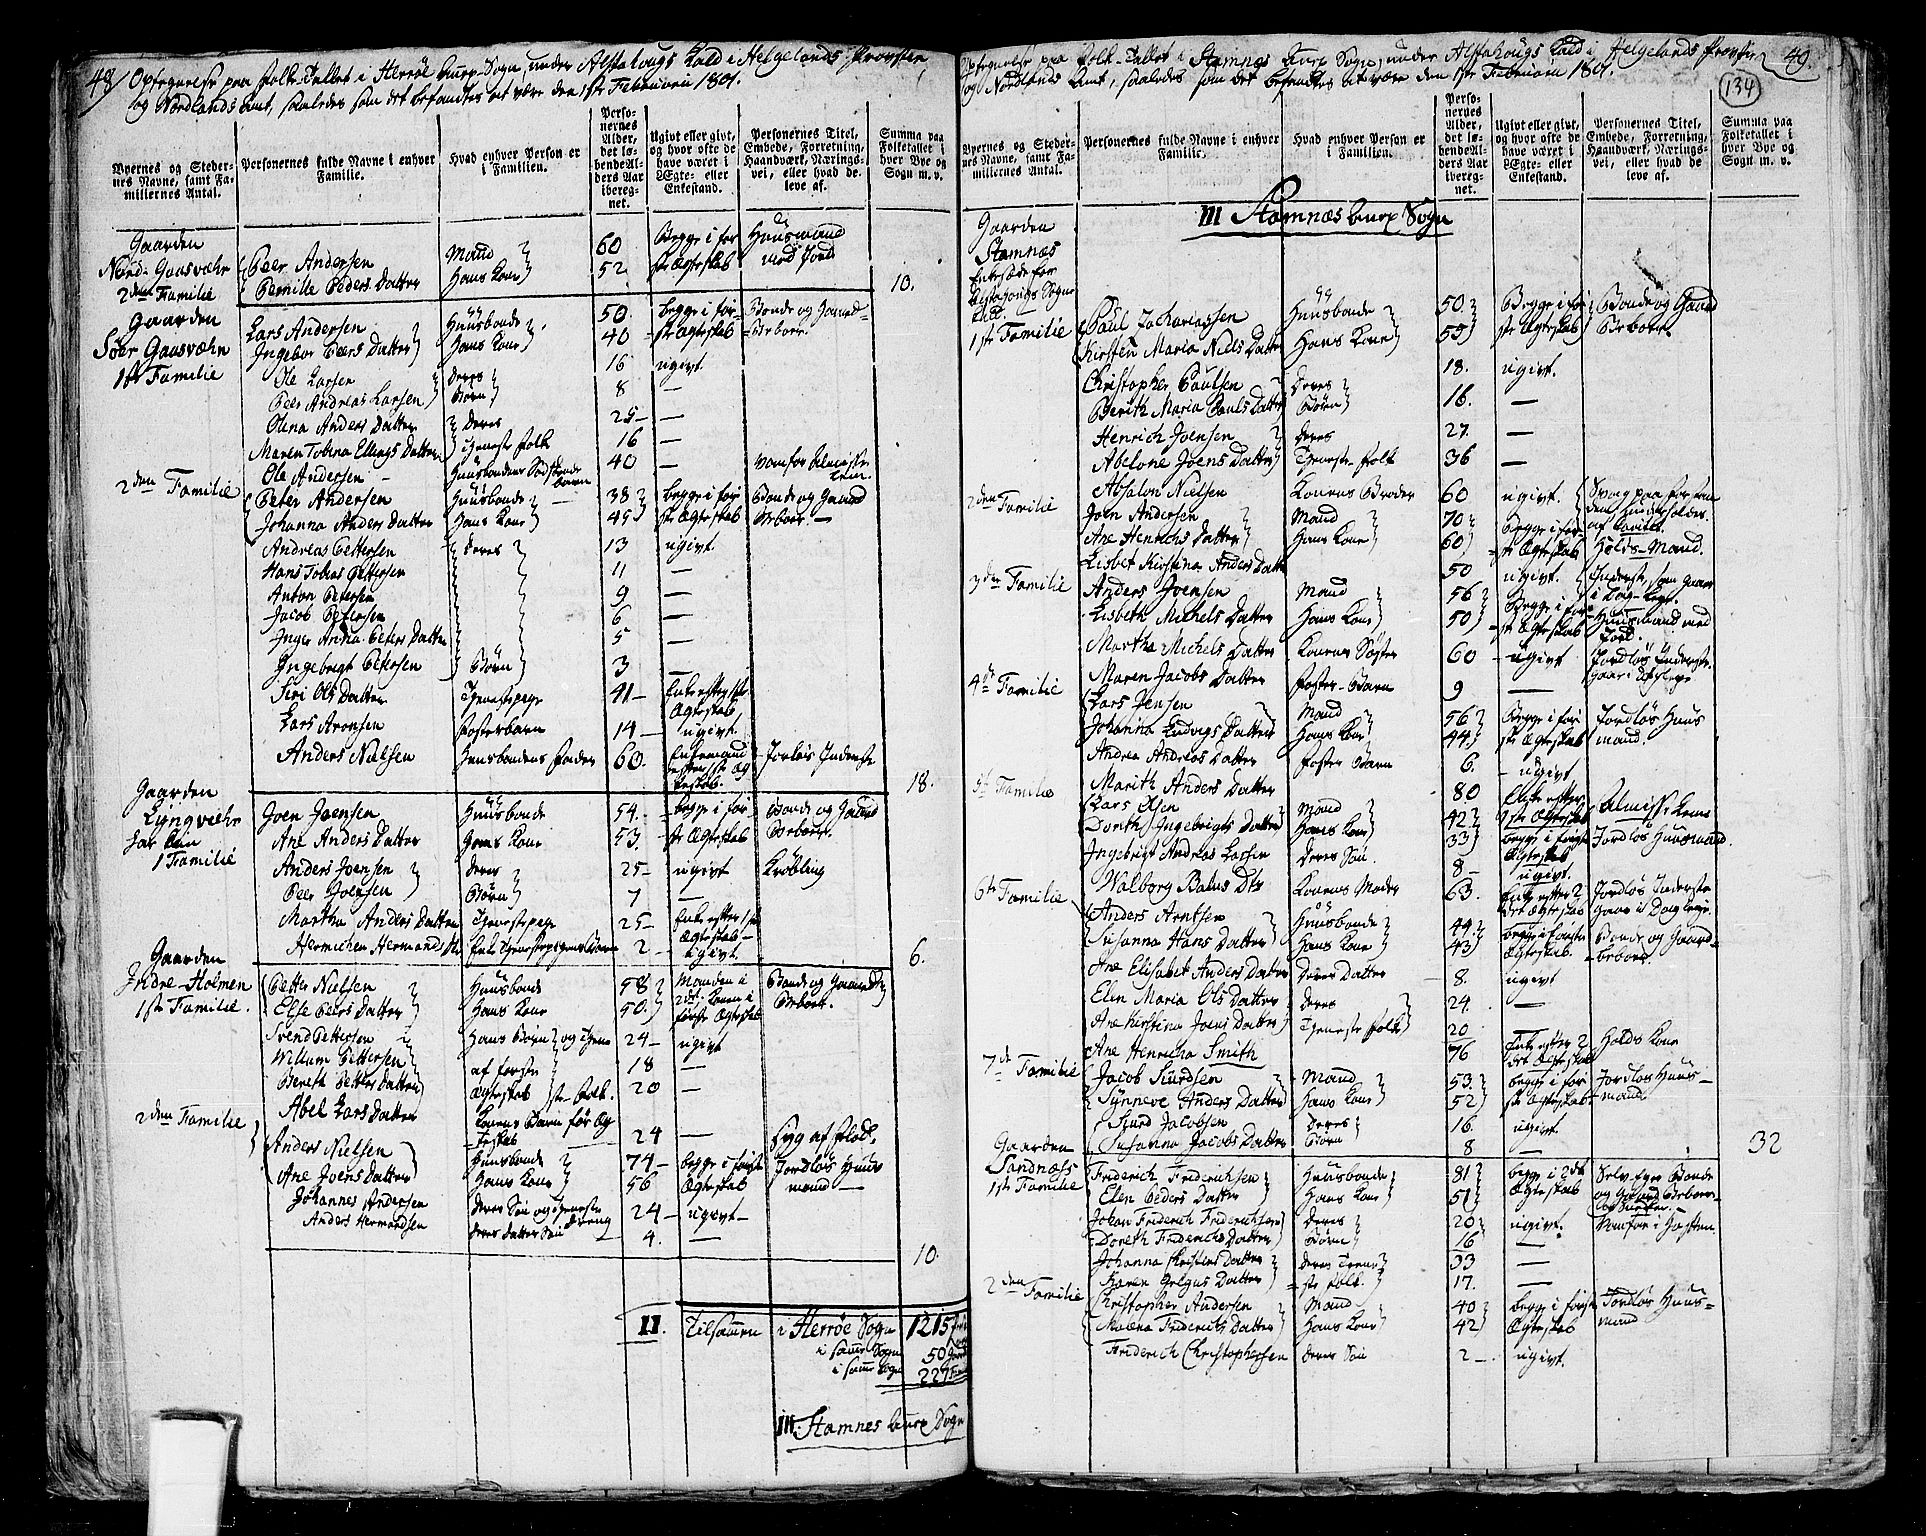 48/ Optegnelse paa Folke-Tallet i Herröe Annex-Sogn, under Alstahougs Kald i Helgelands Provstie
og Nordlands Amt, saaledes som det befandtes at være den 1ste Februarii 1801.
Byernes og Steder-
nes Navne, samt Fa-
miliernes Antal.
Personernes fulde Navne i enhver
Familie.
Hvad enhver Person er
i Familien.
Perso-
nernes
Alder,
det lø-
bende Al-
ders Aar
ibereg-
net.
Ugivt eller givt,
og hvor ofte de
have været i
Ægte- eller
Enkestand.
Personernes Titel,
Embede, Forretning,
Haandværk, Nærings-
vei, eller hvad de
leve af.
Summa paa
Folketallet i
hver Bye og
Sogn m. v.
Gaarden
Nord-Gaasvæhr
2den Familie
Peer Andersen Mand 60 Begge i før Huusmand
Pernille Peders Datter Hans Kone 52 ste Ægteskab med Jord
10.
Gaarden
Söer Gaasvæhr
1ste Familie
Lars Andersen Huusbonde 50. begge i før- Bonde og Gaard-
Ingebor Peers Datter Hans Kone 40 ste Ægteskab Beboer.
Ole Larsen deres 16 ugivt
Peer Andreas Larsen Børn 8 —
Olina Anders Datter deres 25 —
Maren Tobina Ellings Datter tjeneste folk 16 —
Ole Andersen Huusbondens 40 — vanfør Almisse
lem.
2den Familie
Peter Andersen Huusbonde 38 begge i før Bonde og Gaard
Johanna Anders Datter Hans Kone 45 ste Ægteskab Beboer. —
Andreas Pettersen deres 13 ugivt
Hans Tobias Pettersen 11 —
Anton Petersen 9 —
Jacob Petersen 6 —
Inger Anna Peters Datter 5 —
Ingebregt Petersen Børn 3 —
Siri Ols Datter Tjenestepige 41 — Enke efter 1ste
Ægteskab
Lars Aronsen Fosterbarn 14 — ugivt
Anders Nielsen Huusbondens Fader 60. Enkemand Jorløs Inderste
efter 1ste Æg
teskab.
18.
Gaarden
Lyngvæhr
1 Familie
Joen Joensen Huusbonde 54. begge i før Bonde og Gaard
Ane Anders Datter Hans Kone 53. ste Ægteskab Beboer.
Anders Joensen deres 25 — ugivt Krøbling
Peer Joensen Børn 7 —
Martha Anders Datter Tjenestepige 25 — Enke efter 1ste
Ægteskab —
Hermichen Hermands Dtr 2 — ugivt.
6.
Gaarden
Indre-Holmen
1ste Familie.
Petter Nielsen Huusbonde 58 Manden i Bonde og Gaard
Else Peers Datter Hans Kone 50. 2det Konen i Beboer.
første Ægteskab
Svend Pettersen Hans Børn og tjene 24 — ugivt
Willum Pettersen af første 18 —
Bereth Petters Datter Ægteskab ste folk. 20 —
Abel Lars Datter Konens Barn før Æg
teskab 24 —
2den Familie
Anders Nielsen Huusbonde 74 — begge i første Jordløs Huus
Ane Joens Datter Hans Kone 56 Ægteskab mand —
Johannes Andersen deres Søn og tjeneste dreng 24 — ugivt —
Anders Hermandsen deres Datter Søn 4. —
10.
II. Tilsammen i Herröe Sogn 1215
i samme Sogn 50
i samme Sogn 227
III. Stamnes Annex Sogn
Optegnelse paa Folke-Tallet i Stamnes Annex Sogn, under Alstahougs Kald i Helgelands Provstie 49.
og Nordlands Amt, saaledes som det befandtes at være den 1ste Februarii 1801.
134
Byernes og Steder-
nes Navne, samt Fa-
miliernes Antal.
Personernes fulde Navne i enhver
Familie.
Hvad enhver Person er
i Familien.
Perso-
nernes
Alder,
det lø-
bende Al-
ders Aar
ibereg-
net.
Ugivt eller givt,
og hvor ofte de
have været i
Ægte- eller
Enkestand.
Personernes Titel,
Embede, Forretning,
Haandværk, Nærings-
vei, eller hvad de
leve af.
Summa paa
Folketallet i
hver Bye og
Sogn m. v.
III Stamnæs Annex Sogn
Gaarden
Stamnæs
Enkesæde for
Alstahougs Sogne
Kald.
1ste Familie
Paul Zachariassen Huusbonde 50. Begge i før Bonde og Gaard
Kirsten Maria Niels Datter Hans Kone 55 ste Ægteskab Beboer
Christopher Paulsen Deres 18. ugivt.
Berith Maria Pauls Datter Børn 16. —
Henrich Joensen deres 27. —
Abelone Joens Datter Tjeneste-folk 36 —
Absalon Nielsen Konens Broder 60 ugivt.
2den Familie
Joen Andersen Mand 70 begge i før
Ane Henrichs Datter Hans Kone 60 ste Ægteskab Holds-Mand.
Lisbet Kirstina Anders Datter 50 ugivt. Inderste, som gaar
i Dag-Leye.
3den Familie
Anders Joensen Mand 56 Begge i før Huusmand med
Lisbeth Michels Datter Hans Kone 50 ste Ægteskab Jord.
Martha Michels Datter Konens Søster 60 ugivt Jordløs Inderste
Maren Jacobs Datter Foster-Barn 9 —
4de Familie
Lars Jensen Mand 56 Begge i før Jordløs Huus
Johanna Ludvigs Datter Hans Kone 44. ste Ægteskab mand.
Andrea Andreas Datter Foster Barn 6. ugivt
Marith Anders Datter 80 Enke efter Almisse Lem
1ste Ægteskab
5te Familie
Lars Olsen Mand 42 begge i første Jordløs Huusmand
Dorth Ingebrigts Datter Hans Kone 33 Ægteskab
Ingebrigt Andreas Larsen deres Søn. 8 — ugivt.
Walborg Baltus Dtr Konens Moder 63. Enke efter 2 Jordløs Inderste
det Ægteskab gaar i Dagleye.
6te Familie
Anders Arntsen Huusbonde 49. begge i første Bonde og Gaard-
Susanna Hans Datter Hans Kone 43 Ægteskab. beboer.
Ane Elisabet Anders Datter Deres Datter 8. ugivt
Elen Maria Ols Datter deres 24. —
Ane Kirstina Joens Datter Tjeneste folk 20 —
Ane Henricha Smith 76 Enke efter 2 Holds Kone
det Ægteskab
7de Familie
Jacob Siurdsen Mand 53. begge i før Jordløs Huus-
Synneve Anders Datter Hans Kone 52 ste Ægteskab. mand
Siurd Jacobsen deres 16. ugivt.
Susanna Jacobs Datter Børn 8 —
32
Gaarden
Sandnæs
1ste Familie
Friderich Friderichsen Huusbonde 81 begge i 2det Selv-Eyer Bonde
Elen Peders Datter Hans Kone 51 Ægteskab og Gaard Beboer
Johan Friderich Friderichsen deres 20 ugivt. Vanfør i Foden.
Doreth Friderichs Datter Børn 16 —
Johanna Christens Datter deres Tiene 33 —
Karen Helgus Datter ste folk. 17. —
2den Familie
Christopher Andersen Mand 40 begge i første Jordløs Huus-
Malena Friderichs Datter Hans Kone 42 Ægteskab mand
Friderich Christophersen deres Søn 2 — ugivt.